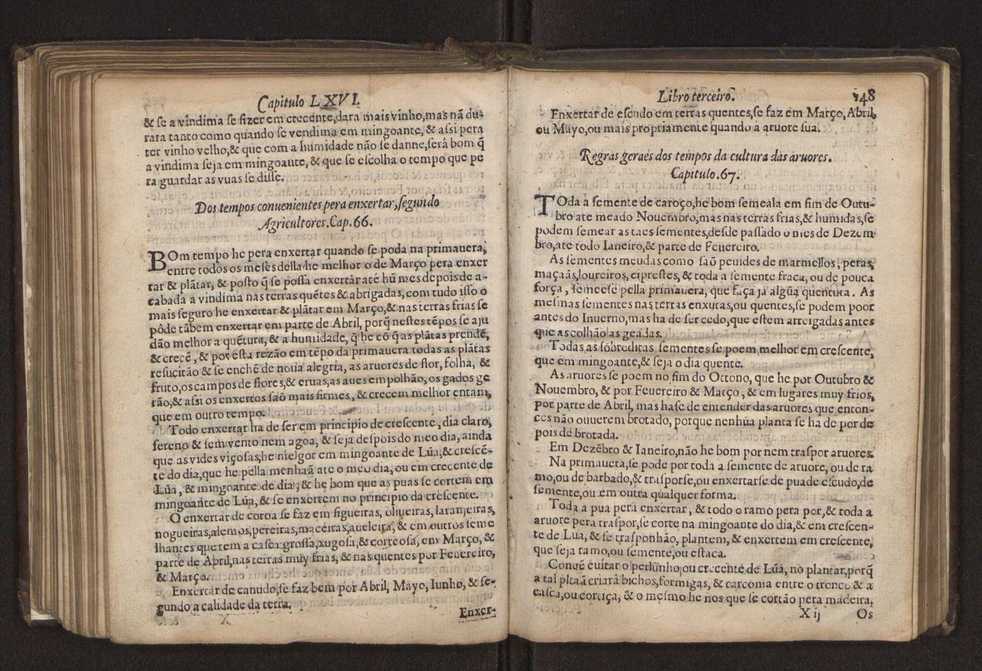 Capitulo LXVI.
& se a vindima se fizer em crecente, dara mais vinho, mas nã du-
rara tanto como quando se vendima em mingoante, & assi pera
ter vinho velho, & que com a humidade não se danne, serà bom q̃
a vindima seja em mingoante, & que se escolha o tempo que pe
ra guardar as vuas se disse.
Dos tempos conuenientes pera enxertar, segundo
Agricultores. Cap. 66.
BOm tempo he pera enxertar quando se poda na primauera,
entre todos os meses della he melhor o de Março pera enxer
tar & plãtar, & posto q̃ se possa enxertar atè hũ mes depois de a-
cabada a vindima nas terras quẽtes & abrigadas, com tudo isso o
mais seguro he enxertar & plãtar em Março, & nas terras frias se
pòde tãbem enxertar em parte de Abril, porq̃ nestes tẽpos se aju
dão melhor a quẽtura, & a humidade, q̃ he cõ q̃ as plãtas prendẽ,
& crecẽ, & por esta rezão em tẽpo da primauera todas as plãtas
resucitão & se enchẽ de noua alegria, as aruores de flor, folha, &
fruto, os campos de flores, & eruas, as aues empolhão, os gados ge
rão, & assi os enxertos saõ mais firmes, & crecem melhor entam,
que em outro tempo.
Todo enxertar ha de ser em principio de crescente, dia claro,
sereno & sem vento nem agoa, & seja despois do meo dia, ainda
que as vides viçosas, he melgor em mingoante de Lũa, & crescẽ-
te do dia, que he pella menhaã ate o meo dia, ou em crecente de
Lũa, & mingoante de dia; & he bom que as puas se cortem em
mingoante de Lũa, & se enxertem no principio da crescente.
O enxertar de coroa se faz em figueiras, oliueiras, laranjeiras,
nogueiras, alemos, pereiras, maceiras, aueleiras, & em outros seme
lhantes que tem a casca grossa, xugosa, & corteosa, em Março, &
parte de Abril, nas terras muy frias, & nas quentes por Feuereiro,
& Março.
Enxertar de canudo, se faz bem por Abril, Mayo, Iunho, & se-
gundo a calidade da terra.
X
Enxer-
Libro terceiro.
148
Enxertar de escudo em terras quentes, se faz em Março, Abril,
ou Mayo, ou mais propriamente quando a aruore sua.
Regras geraes dos tempos da cultura das aruores.
Capitulo. 67.
TOda a semente de caroço, he bom semeala em fim de Outu-
bro ate meado Nouembro, mas nas terras frias, & humidas, se
podem semear as taes sementes, desde passado o mes de Dezem
bro, ate todo Ianeiro, & parte de Feuereiro.
As sementes meudas como saõ peuides de marmellos, peras,
maçaãs, loureiros, ciprestes, & toda a semente fraca, ou de pouca
força, semeese pella primauera, que faça ja algũa quentura. As
mesmas sementes nas terras enxutas, ou quentes, se podem poor
antes do Inuerno, mas ha de ser cedo, que estem arreigadas antes
que as colhão as geadas.
Todas as sobreditas sementes se poem melhor em crescente,
que em mingoante, & seja o dia quente.
As aruores se poem no fim do Octono, que he por Outubro &
Nouembro, & por Feuereiro & Março, & em lugares muy frios,
por parte de Abril, mas hase de entender das aruores que enton-
ces não ouuerem brotado, porque nenhũa planta se ha de por de
pois de brotada.
Em Dezẽbro & Ianeiro, não he bom por nem traspor aruores.
Na primauera, se pode por toda a semente de aruore, ou de ra
mo, ou de barbado, & trasporse, ou enxertarse de pua de escudo, de
semente, ou em outra qualquer forma.
Toda a pua pera enxertar, & todo o ramo pera por, & toda a
aruore pera traspor, se corte na mingoante do dia, & em crescen-
te de Lua, & se trasponhão, plantem, & enxertem em crescente,
que seja ramo, ou semente, ou estaca.
Conuẽ euitar o perlũnho, ou crecente de Lũa, no plantar, porq̃
a tal plãta criarà bichos, formigas, & carcoma entre o tronco & a
casca, ou cortiça, & o mesmo he nos que se cortão pera madeira.
X ij
Os